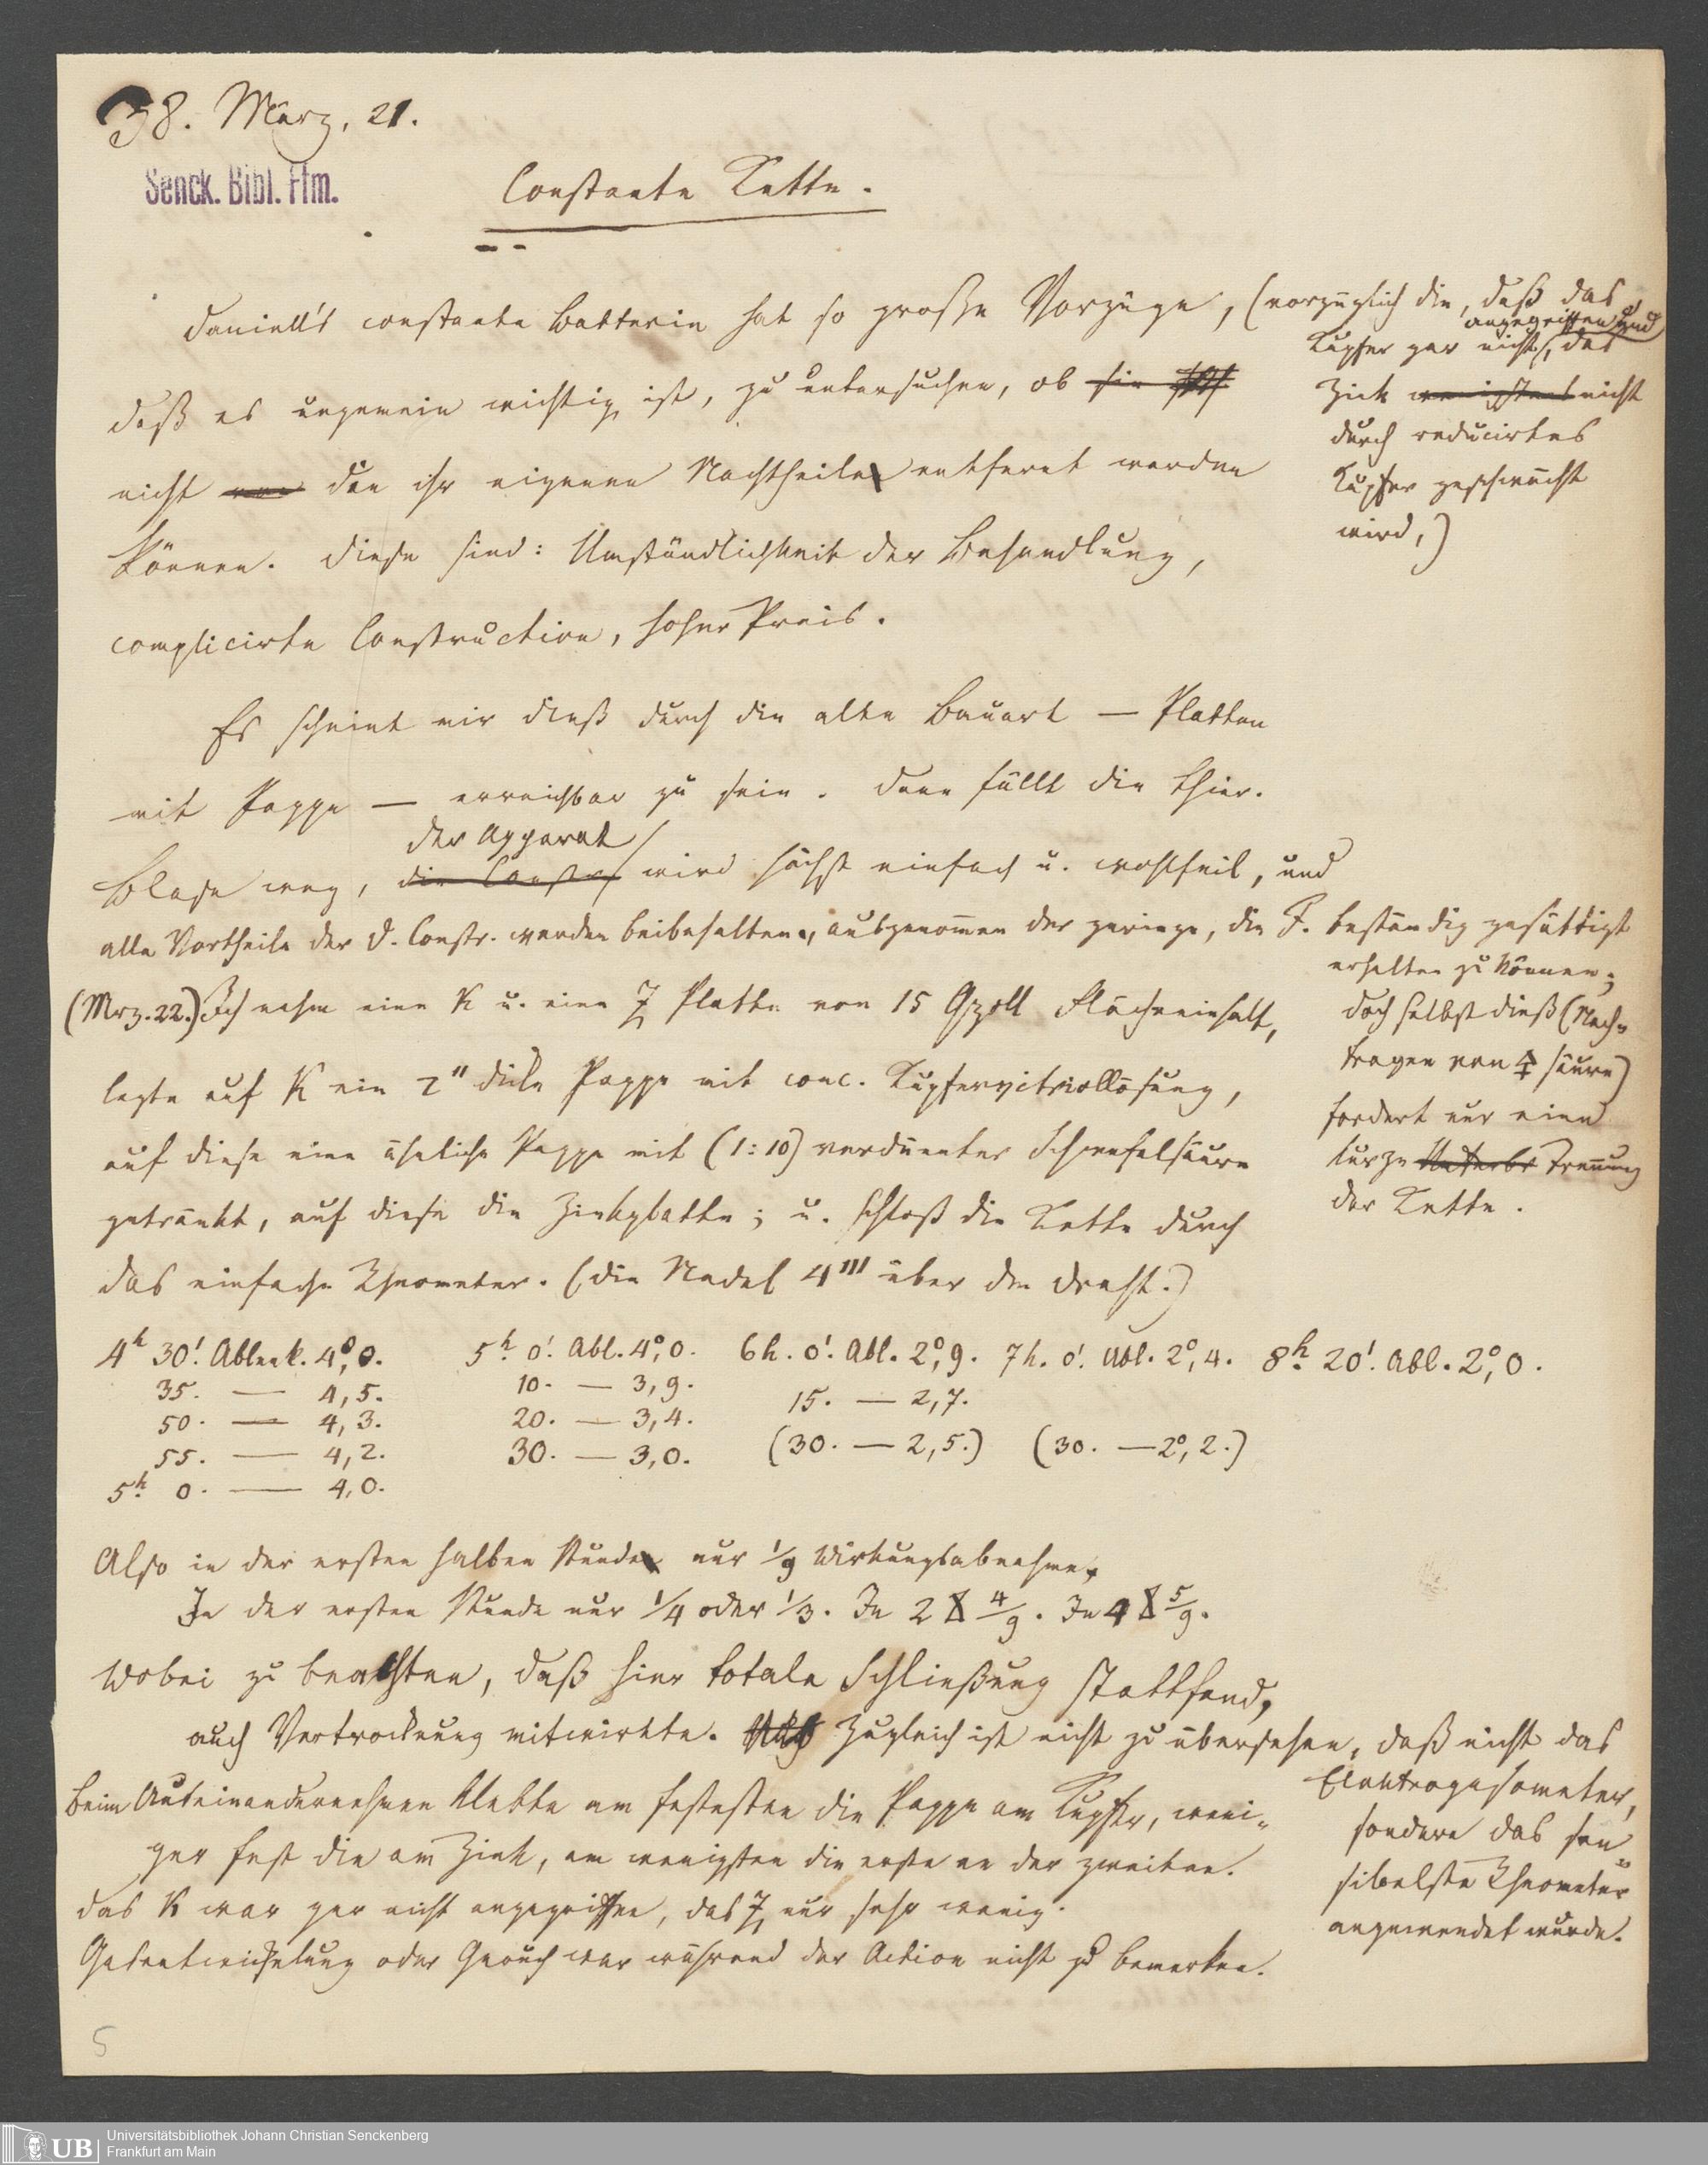 38. März, 21.
Senck. Bibl. Ffm.
Constante Kette.
Daniell's constante Batterie hat so große Vorzüge, (vorzüglich die, daß das
Kupfer gar nicht angegriffen und das
Zink wenigstens nicht
durch reducirtes
Kupfer geschwächt
wird,)
daß es ungemein wichtig ist, zu untersuchen, ob sie
nicht von den ihr eigenen Nachtheilen entfernt werden
können. Diese sind: Umständlichkeit der Behandlung,
complicirte Construction, hoher Preis.
Es scheint mir dieß durch die alte Bauart — Platten
mit Pappe — erreichbar zu sein. Denn fällt die thier.
Blase weg, die Constr. der Apparat wird höchst einfach u. wohlfeil, und
alle Vortheile der D. Constr. werden beibehalten, ausgenommen der geringe, die F. beständig gesättigt
erhalten zu können;
doch selbst dieß (Nach-
tragen von säure)
fordert nur eine
kurze Unterbr Trennung
der Kette.
(Mrz. 22.) Ich nahm eine K u. eine Z Platte von 15 Qzoll Flächeninhalt,
legte auf K ein 2" dicke Pappe mit conc. Kupfervitriollösung,
auf diese eine ähnliche Pappe mit (1:10) verdünnter Schwefelsäure
getränkt, auf diese die Zinkplatte; u. schloß die Kette durch
das einfache Rheometer. (die Nadel 4''' über dem Draht.)
4h 30'. Ablenk. 4°,0. 5h. 0'. Abl. 4°,0. 6h. 0'. Abl. 2°,9. 7h. 0'. Abl. 2°,4. 8h. 20'. Abl. 2°,0.
35. — 4,5. 10. — 3,9. 15. — 2,7.
50. — 4,3. 20. — 3,4.
55. — 4,2. 30. — 3,0. (30. — 2,5.) (30. — 2°,2.)
5h. 0. — 4,0.
Also in der ersten halben Stunde nur 1/9 Wirkungsabnahme,
In der ersten Stunde nur 1/4 oder 1/3. In 2 4/9. In 4 5/9.
Wobei zu beachten, daß hier totale Schließung stattfand,
auch Vertrocknung mitwirkte. Zugleich ist nicht zu übersehen, daß nicht das
Elektrogasometer,
sondern das sen-
sibelste Rheometer
angewendet wurde.
Beim Auseinandernehmen klebte am festesten die Pappe am Kupfer, weni-
ger fest die am Zink, am wenigsten die erste an der zweiten.
Das K war gar nicht angegriffen, das Z nur sehr wenig.
Gasentwickelung oder Geruch war während der Action nicht zu bemerken.
5
UB Universitätsbibliothek Johann Christian Senckenberg
Frankfurt am Main